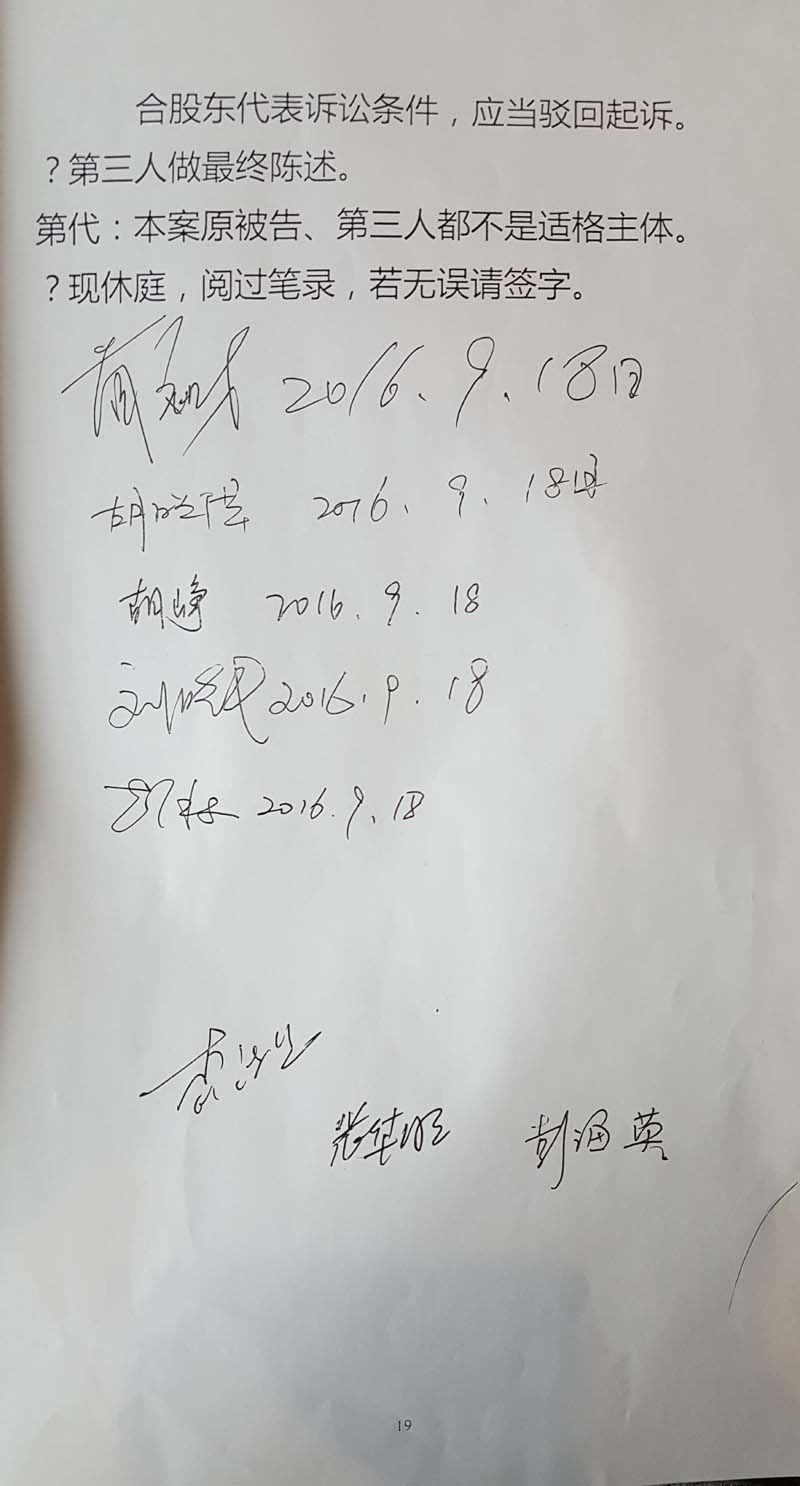 合股东代表诉讼条件，应当驳回起诉。
？第三人做最终陈述。
第代：本案原被告、第三人都不是适格主体。
？现休庭，阅过笔录，若无误请签字。
2016.9.18日
胡 2016.9.18日
胡 2016.9.18
刘晓 2016.9.18
2016.9.18
彭海英
19